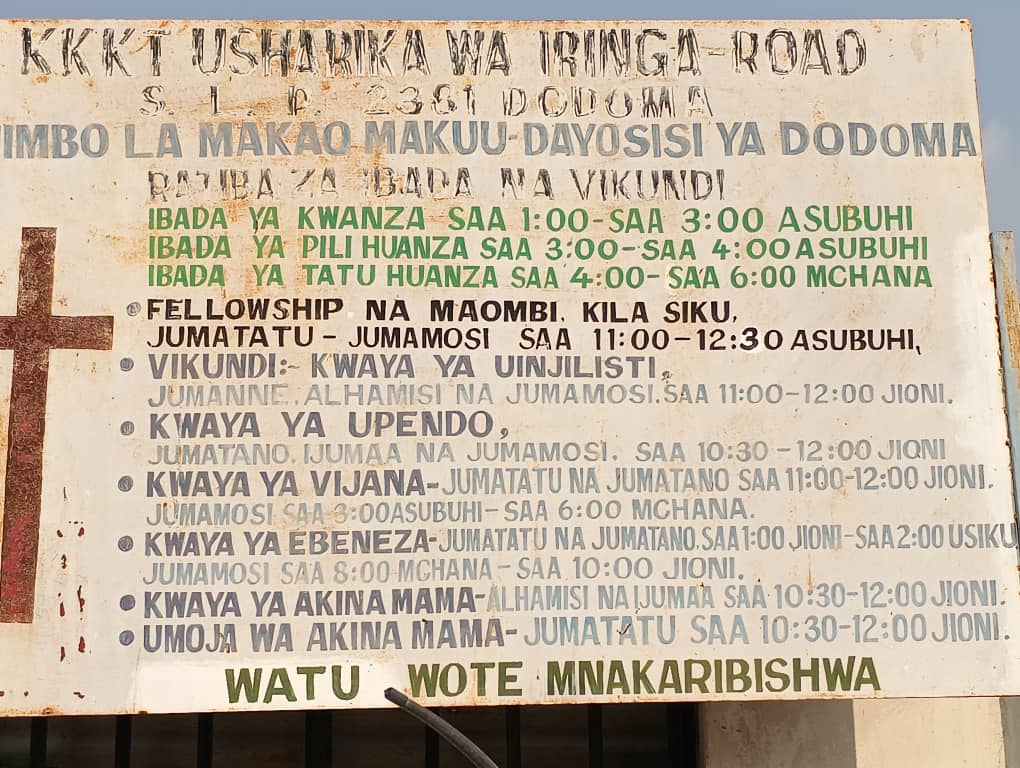 KKKT USHARIKA WA IRINGA-ROAD
S. L. P. 2381 DODOMA
IMBO LA MAKAO MAKUU-DAYOSISI YA DODOMA
RATIBA ZA IBADA NA VIKUNDI
IBADA YA KWANZA SAA 1:00-SAA 3:00 ASUBUHI
IBADA YA PILI HUANZA SAA 3:00-SAA 4:00 ASUBUHI
IBADA YA TATU HUANZA SAA 4:00-SAA 6:00 MCHANA
• FELLOWSHIP NA MAOMBI. KILA SIKU,
JUMATATU - JUMAMOSI SAA 11:00-12:30 ASUBUHI,
• VIKUNDI:- KWAYA YA UINJILISTI,
JUMANNE, ALHAMISI NA JUMAMOSI. SAA 11:00-12:00 JIONI.
• KWAYA YA UPENDO,
JUMATANO, IJUMAA NA JUMAMOSI. SAA 10:30-12:00 JIONI
• KWAYA YA VIJANA-JUMATATU NA JUMATANO SAA 11:00-12:00 JIONI.
JUMAMOSI SAA 3:00ASUBUHI-SAA 6:00 MCHANA.
• KWAYA YA EBENEZA-JUMATATU NA JUMATANO.SAA1:00 JIONI-SAA2:00 USIKU
JUMAMOSI SAA 8:00-MCHANA-SAA 10:00 JIONI.
• KWAYA YA AKINA MAMA-ALHAMISI NA IJUMAA SAA 10:30-12:00 JIONI.
• UMOJA WA AKINA MAMA-JUMATATU SAA 10:30-12:00 JIONI.
WATU WOTE MNAKARIBISHWA